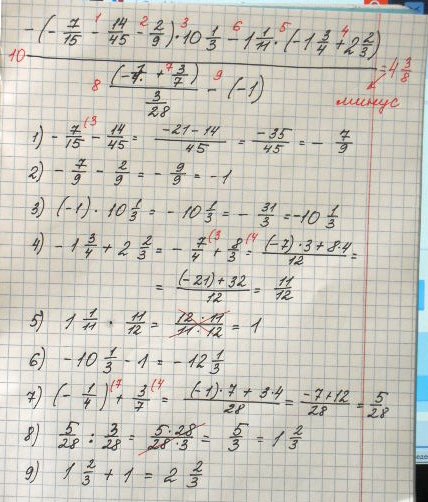 1 2 3 6 5 4
-(-7/15 - 14/45 - 2/9) · 10 1/3 - 1 1/11 · (-1 3/4 + 2 2/3)
10 ──────────── = 4 3/8
8 (-1/4 +⁷ 3/7) / (3/28) -⁹ (-1)
минус
1) -7/15 (3 - 14/45 = (-21-14)/45 = -35/45 = -7/9
2) -7/9 - 2/9 = -9/9 = -1
3) (-1) · 10 1/3 = -10 1/3 = -31/3 = -10 1/3
4) -1 3/4 + 2 2/3 = -7/4 (3 + 8/3 (4 = ((-7)·3+8·4)/12 =
= ((-21)+32)/12 = 11/12
5) 1 1/11 · 11/12 = (12·11)/(11·12) = 1
6) -10 1/3 - 1 = -12 1/3
7) (-1/4) (7 + 3/7 (4 = ((-1)·7+3·4)/28 = (-7+12)/28 = 5/28
8) 5/28 : 3/28 = (5·28)/(28·3) = 5/3 = 1 2/3
9) 1 2/3 + 1 = 2 2/3